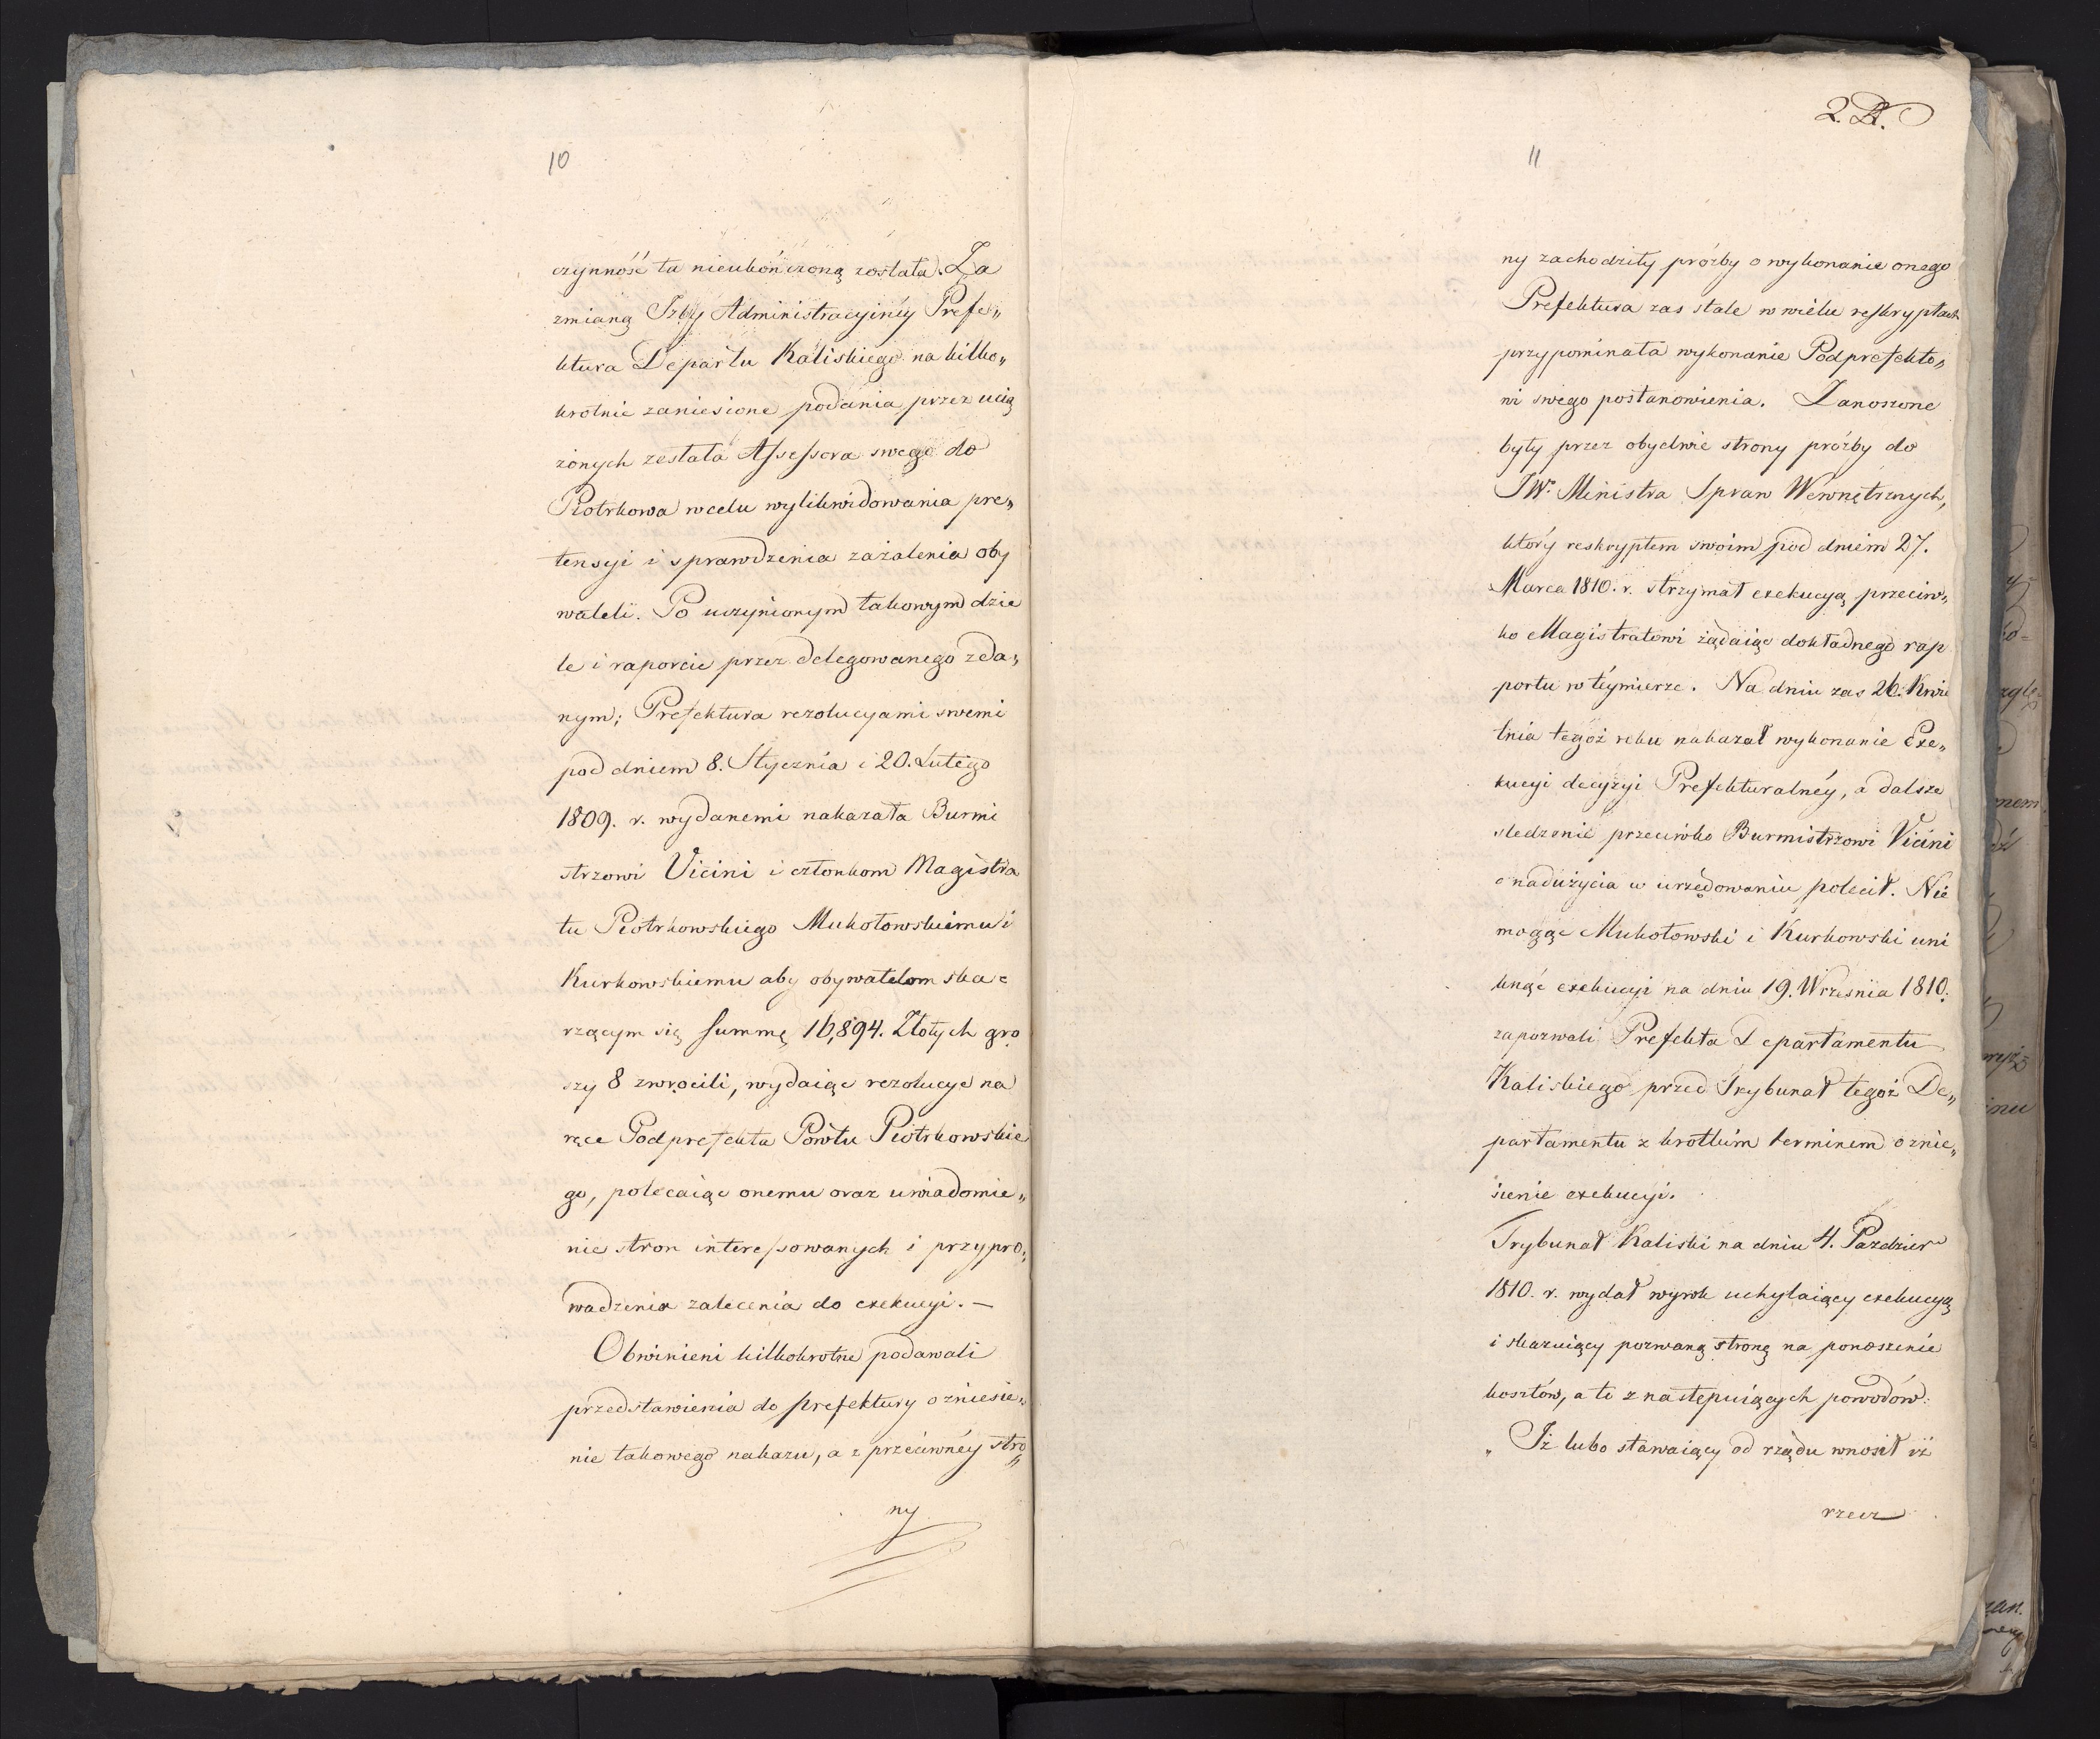 10
czynność ta nieukończoną została. Za
zmianą Izby Administracyiney Prefe„
ktura Departu Kaliskiego na kilko„
krotnie zaniesione podania przez ucią
żonych zesłała Assessora swego do
Piotrkowa w celu wylikwidowania pre„
tensyi i sprawdzenia zażalenia oby
wateli. Po uczynionym takowym dzie
le i raporcie przez delegowanego zda„
nym; Prefektura rezolucyami swemi
pod dniem 8. Stycznia i 20. Lutego
1809. r. wydanemi nakazała Burmi
strzowi Vicini i członkom Magistra
tu Piotrkowskiego Mukołowskiemu i
Kurkowskiemu aby obywatelom ska=
rzącym się summę 16,894. Złotych gro
szy 8 zwrocili, wydaiąc rezolucye na
ręce Podprefekta Powtu Piotrkowskie
go, polecaiąc onemu oraz uwiadomie„
nie stron interessowanych i przypro„
wadzenia zalecenia do exekucyi. —
Obwinieni kilkokrotne podawali
przedstawienia do prefektury o zniesie„
nie takowego nakazu, a z przeciwnéy stro„
ny
11
ny zachodziły próżby o wykonanie onego
Prefektura zas stale w wielu reskryptach
przypominała wykonanie Podprefekto„
wi swego postanowienia. Zanoszone
były przez obydwie strony próżby do
JW. Ministra Spraw Wewnętrznych,
który reskryptem swoim pod dniem 27.
Marca 1810. r. strzymał exekucyą przeciw„
ko Magistratowi żądaiąc dokładnego rap
portu w téymierze. Na dniu zas 26. Kwie
tnia tegoż roku nakazał wykonanie Exe„
kucyi decyzyi Prefekturalnéy, a dalsze
sledzenie przeciwko Burmistrzowi Vicini
o nadużycia w urzędowaniu polecił. Nie
mogąc Mukołowski i Kurkowski uni
knąć exekucyi na dniu 19. Wrzesnia 1810.
zapozwali Prefekta Departamentu
Kaliskiego przed Trybunał tegoż De„
partamentu z krotkim terminem o znie„
sienie exekucyi.
Trybunał Kaliski na dniu 4. Pazdzier
1810. r. wydał wyrok uchylaiący exekucyą
i skazuiący pozwaną stronę na ponoszenie
kosztów, a to z następuiących powodów:
„ Iż lubo stawaiący od rządu wnosił iż
rzecz